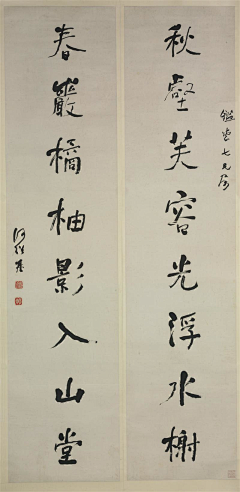 七兄屬
秋壑芙容光浮水榭
春巖橘柚影入山堂
何紹基